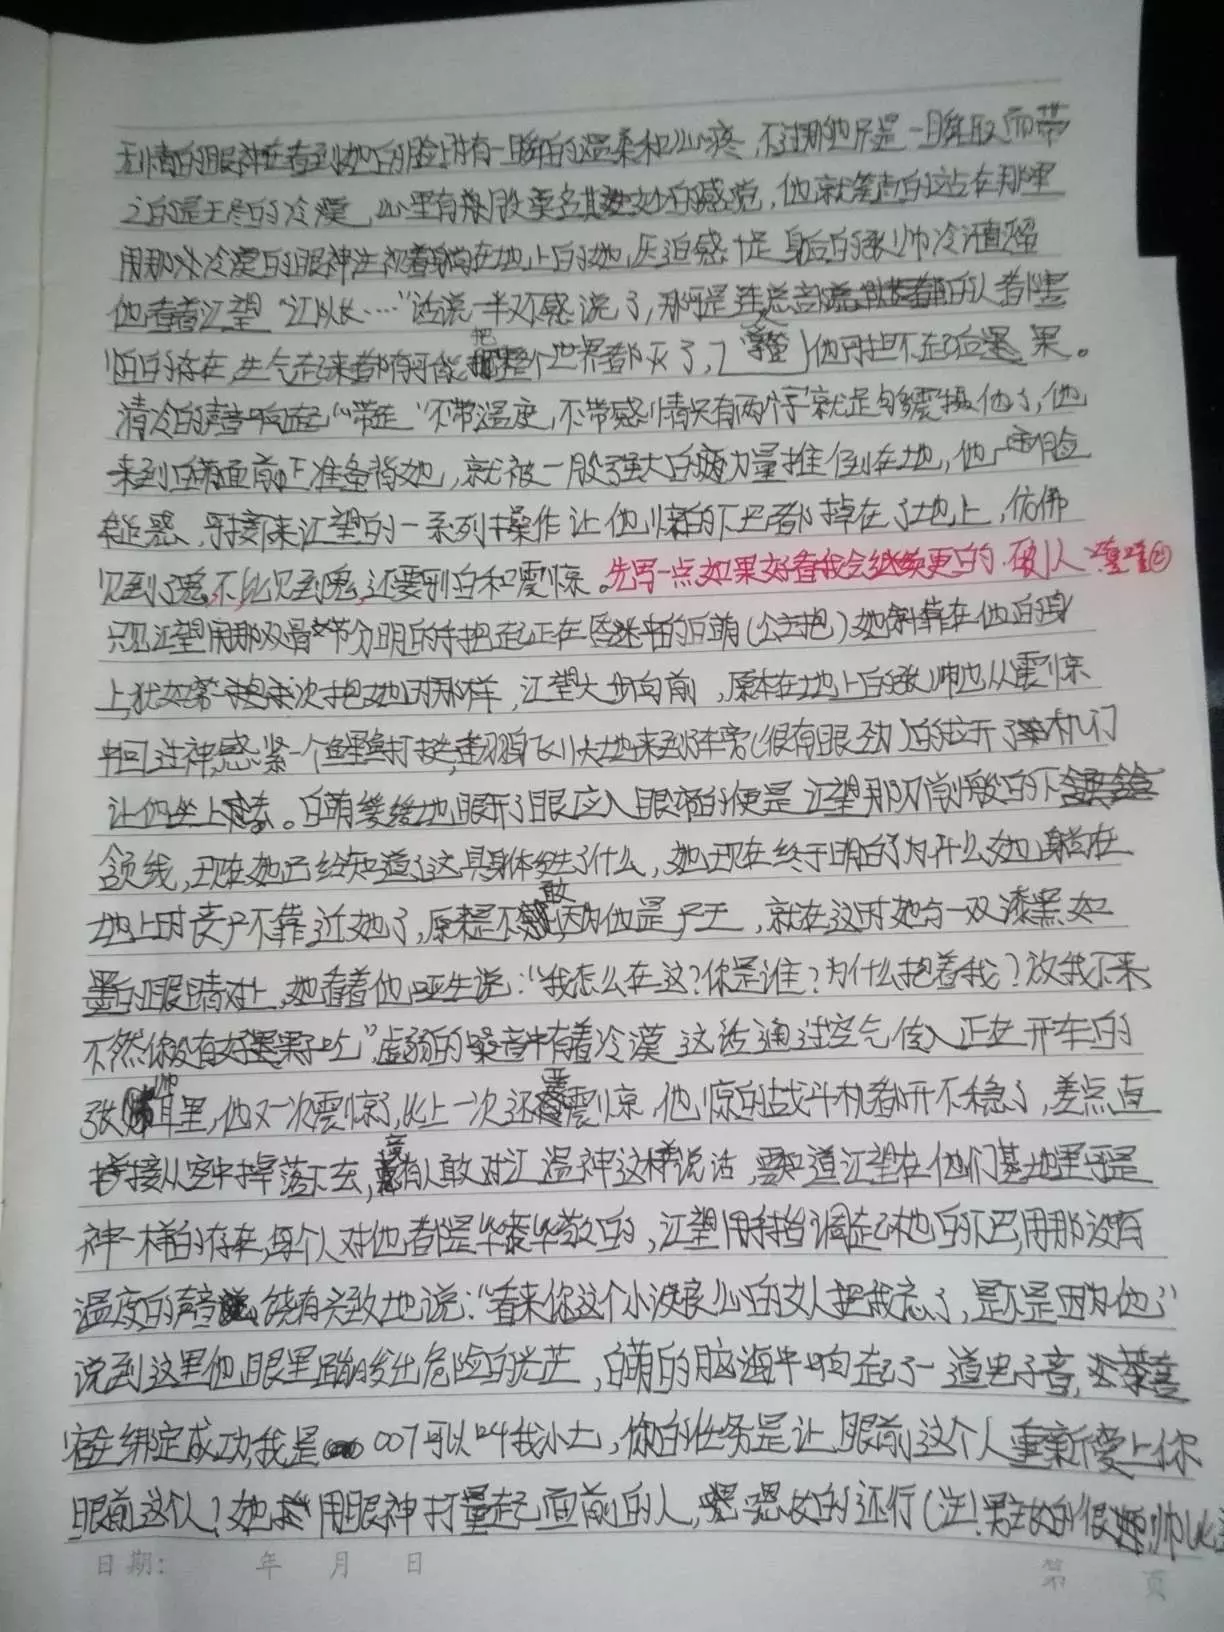 无情的眼神在看到她的脸时有一瞬的温柔和心疼，不过那也只是一瞬取而带
之的是无尽的冷漠，心里有股莫名其妙的感觉，他就笔直的站在那里
用那冷漠的眼神注视着躺在地上的她，压迫感十足 身后的张帅冷汗直冒
他看着江望“江队长…”话说一半不感说了，那可是连总部 的人都害
怕的存在，生气起来都有可能把整个世界都灭了，他可担不起后果。
清冷的声音响起“带走”不带温度，不带感情只有两个字就足够震摄他了，他
来到白萌面前正准备背她，就被一股强大的力量推倒在地，他一脸
疑惑，接下来江望的一系列操作让他惊的下巴都掉在了地上，仿佛
见到了鬼，不，比见到鬼，还要害怕和震惊。先写一点如果好看我会继续更的.破人
只见江望用那双骨节分明的手把起正在昏迷中的白萌(公主抱)她斜靠在他的身
上，犹如第一次抱她时那样，江望大步向前，原本在地上的张帅也从震惊
中回过神，感紧一个鲤鱼打挺，飞快地来到车旁(很有眼劲)的拉开了机门
让他坐上去。白萌缓缓地睁开了眼应入眼帘的便是江望那刀削般的下
颌线，现在她已经知道了这具身体发生了什么，她现在终于明白了为什么她躺在
地上时丧尸不靠近她了，原来是不敢因为他是尸王，就在这时她与一双漆黑如
墨的眼睛对上，她看着他哑生说：“我怎么在这？你是谁？为什么抱着我？放我下来
不然你没有好果子吃”虚弱的嗓音中有着冷漠 这话通过空气传入正在开车的
张帅耳里，他又一次震惊了，比上一次还要震惊，他惊的战斗机都开不稳了，差点直
接从空中掉落下去，竟有人敢对江温神这样说话，要知道江望在他们基地里可是
神一样的存在，每个人对他都是毕恭毕敬的，江望用手挡调起她的下巴，用那没有
温度的声音饶有兴致地说：“看来你这个小没良心的女人把我忘了，是不是因为他”
说到这里他眼里蹦发出危险的光芒，白萌的脑海中响起了一道电子音，恭喜
宿主绑定成功，我是 007可以叫我小七，你的任务是让眼前这个人重新爱上你
眼前这个人？她 用眼神打量起面前的人，嗯嗯 的还行(注！男主 的很 帅
日期： 年 月 日
第 页